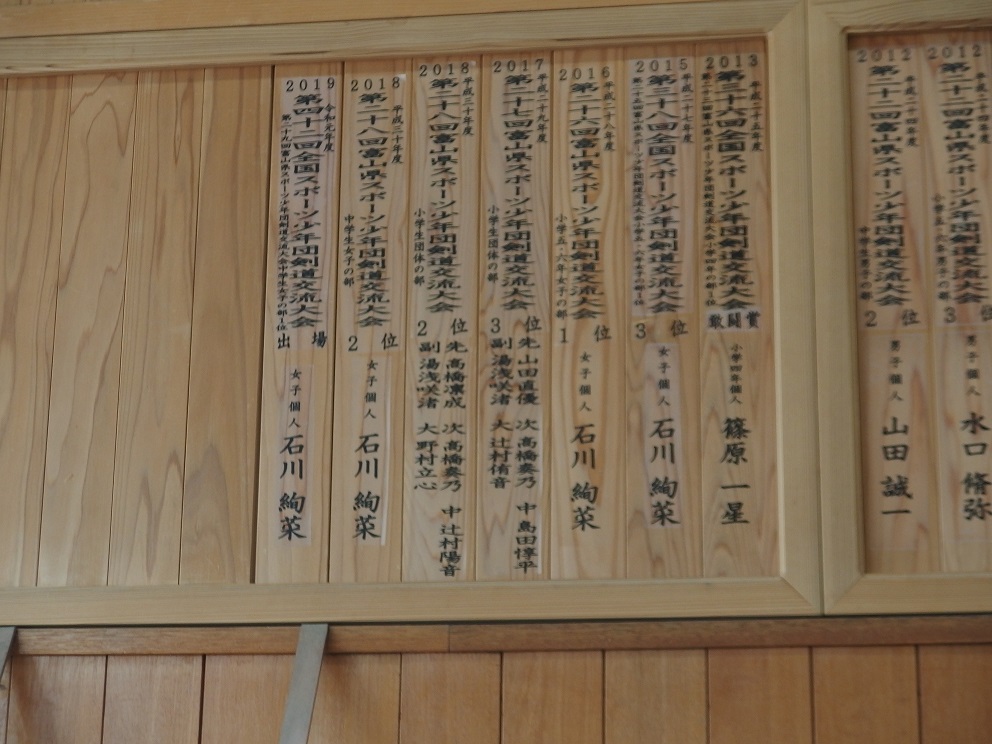 2012
平成二十四年度
第二十二回富山県スポーツ少年団剣道交流大会
3位
男子個人
水口脩弥
2012
平成二十四年度
第二十二回富山県スポーツ少年団剣道交流大会
2位
男子個人
山田誠一
2013
平成二十五年度
第三十六回全国スポーツ少年団剣道交流大会
敢闘賞
小学四年個人
篠原一星
2015
平成二十七年度
第三十八回全国スポーツ少年団剣道交流大会
3位
女子個人
石川絢菜
2016
平成二十八年度
第二十六回富山県スポーツ少年団剣道交流大会
小学五・六年女子の部
1位
女子個人
石川絢菜
2017
平成二十九年度
第二十七回富山県スポーツ少年団剣道交流大会
小学生団体の部
3位
先 山田直優 次 高橋奏乃 中 島田惇平
副 湯浅咲渚 大 辻村侑音
2018
平成三十年度
第二十八回富山県スポーツ少年団剣道交流大会
小学生団体の部
2位
先 高橋凛成 次 高橋奏乃 中 辻村陽音
副 湯浅咲渚 大 野村立心
2018
平成三十年度
第二十八回富山県スポーツ少年団剣道交流大会
中学生女子の部
2位
女子個人
石川絢菜
2019
令和元年度
第四十二回全国スポーツ少年団剣道交流大会
第二十九回富山県スポーツ少年団剣道交流大会中学生女子の部1位
出場
女子個人
石川絢菜